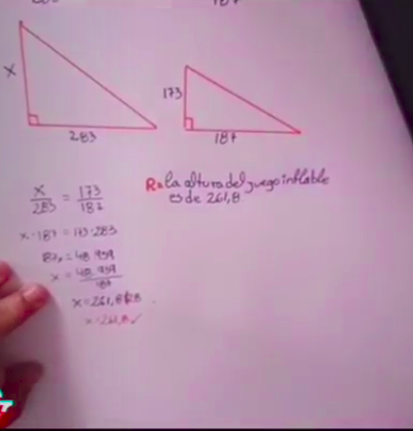 187
x
173
283
187
x/283 = 173/187
R= la altura del juego inflable
es de 261,8
x · 187 = 173 · 283
187x = 48.959
x = 48.959/187
x = 261,8
x = 261,8 ✓